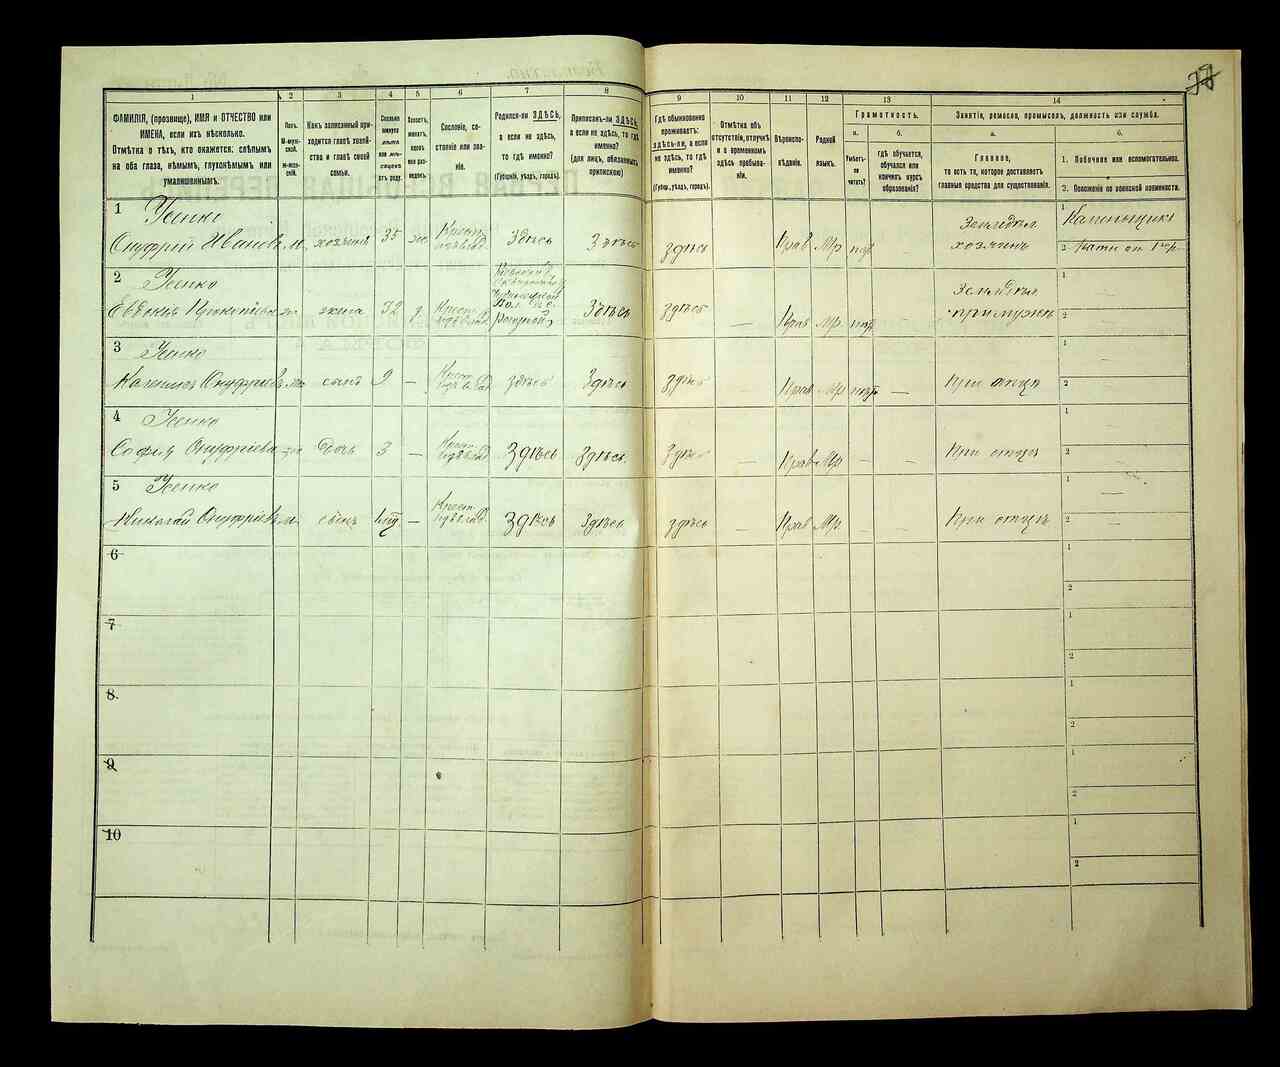 1 2 3 4 5 6 7 8 9 10 11 12 13 14
ФАМИЛІЯ, (прозвище), ИМЯ и ОТЧЕСТВО или
ИМЕНА, если ихъ нѣсколько.
Отмѣтка о тѣхъ, кто окажется: слѣпымъ
на оба глаза, нѣмымъ, глухонѣмымъ или
умалишеннымъ.
Полъ.
М-муж-
ской.
Ж-жен-
скій.
Какъ записанный при-
ходится главѣ хозяй-
ства и главѣ своей
семьи.
Сколько
минуло
лѣтъ
или мѣ-
сяцевъ
отъ роду.
Холостъ,
женатъ,
вдовъ
или раз-
веденъ.
Сословіе, со-
стояніе или зва-
ніе.
Родился-ли ЗДѢСЬ,
а если не здѣсь,
то гдѣ именно?
(Губернія, уѣздъ, городъ).
Приписанъ-ли ЗДѢСЬ,
а если не здѣсь, то гдѣ
именно?
(для лицъ, обязанныхъ
припискою)
Гдѣ обыкновенно
проживаетъ:
здѣсь-ли, а если
не здѣсь, то гдѣ
именно?
(Губерн., уѣздъ, городъ).
Отмѣтка объ
отсутствіи, отлучкѣ
и о временномъ
здѣсь пребыва-
ніи.
Вѣроиспо-
вѣданіе.
Родной
языкъ.
Грамотность.
а.
Умѣетъ-
ли
читать?
б.
гдѣ обучается,
обучался или
кончилъ курсъ
образованія?
Занятіе, ремесло, промыселъ, должность или служба.
а.
Главное,
то есть то, которое доставляетъ
главныя средства для существованія.
б.
1. Побочное или вспомогательное.
2. Положеніе по воинской повинности.
1 Усенко
Онуфрій Ивановъ м. хозяинъ 35 ж Здѣсь Здѣсь здѣсь Прав Мр Земледѣл хозяинъ
1 Каменьщикъ
2
2 Усенко
Евдокія жена 32 Здѣсь здѣсь — Прав Мр Земледѣл при мужѣ
1 —
2 —
3 Усенко
Онуфріевъ м. сынъ 9 — здѣсь Здѣсь здѣсь Прав Мр — При отцѣ
1 —
2
4 Усенко
Софія Онуфріева дочь 3 — Здѣсь Здѣсь. Здѣсь — Прав Мр — — При отцѣ
1 —
2 —
5 Усенко
Николай Онуфріевъ м. сынъ — Здѣсь Здѣсь здѣсь — Прав Мр. — — При отцѣ
1 —
2 —
6
1
2
7
1
2
8
1
2
9
1
2
10
1
2